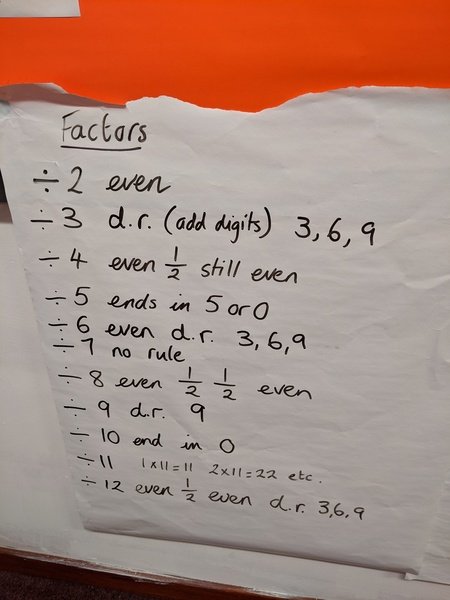 Factors
÷2 even
÷3 d.r. (add digits) 3,6,9
÷4 even 1/2 still even
÷5 ends in 5 or 0
÷6 even d.r. 3,6,9
÷7 no rule
÷8 even 1/2 1/2 even
÷9 d.r. 9
÷10 end in 0
÷11 1x11=11 2x11=22 etc.
÷12 even 1/2 even d.r. 3,6,9